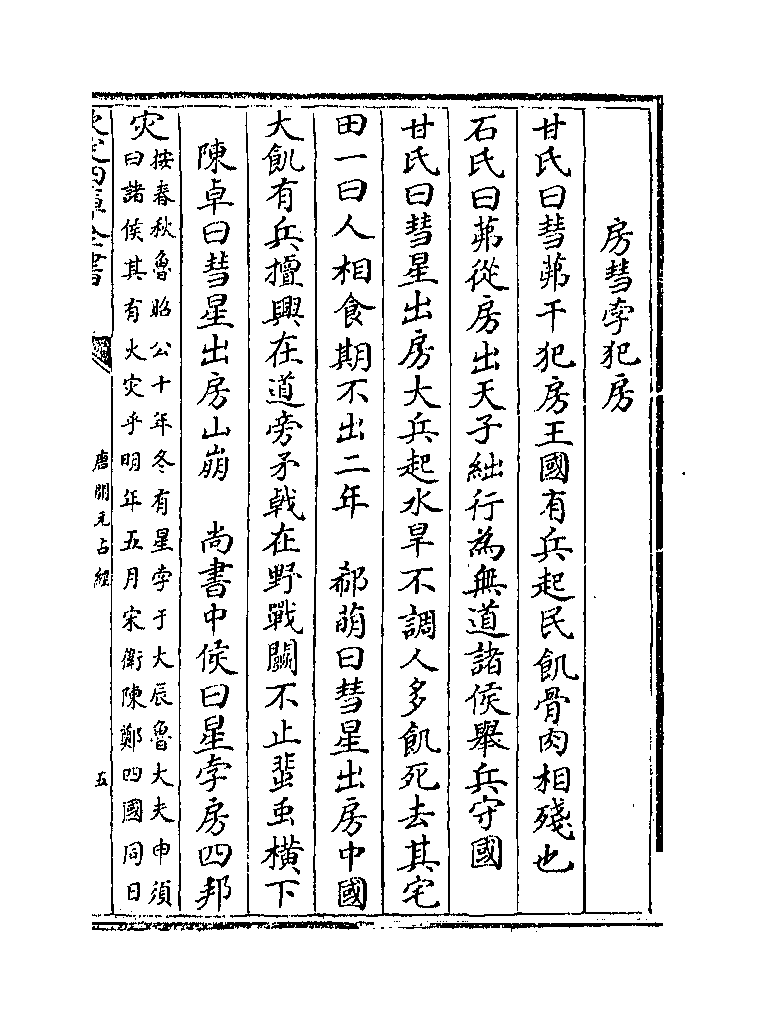 房彗孛犯房
甘氏曰彗茀干犯房王國有兵起民飢骨肉相殘也
石氏曰茀從房出天子絀行為無道諸侯舉兵守國
甘氏曰彗星出房大兵起水旱不調人多飢死去其宅
田一曰人相食期不出二年　郗萌曰彗星出房中國
大飢有兵擅興在道旁矛戟在野戰鬬不止蜚䖝橫下
陳卓曰彗星出房山崩　尚書中候曰星孛房四邦
灾
按春秋魯昭公十年冬有星孛于大辰魯大夫申須
曰諸侯其有火灾乎明年五月宋衛陳鄭四國同日
欽定四庫全書
唐開元占經
五